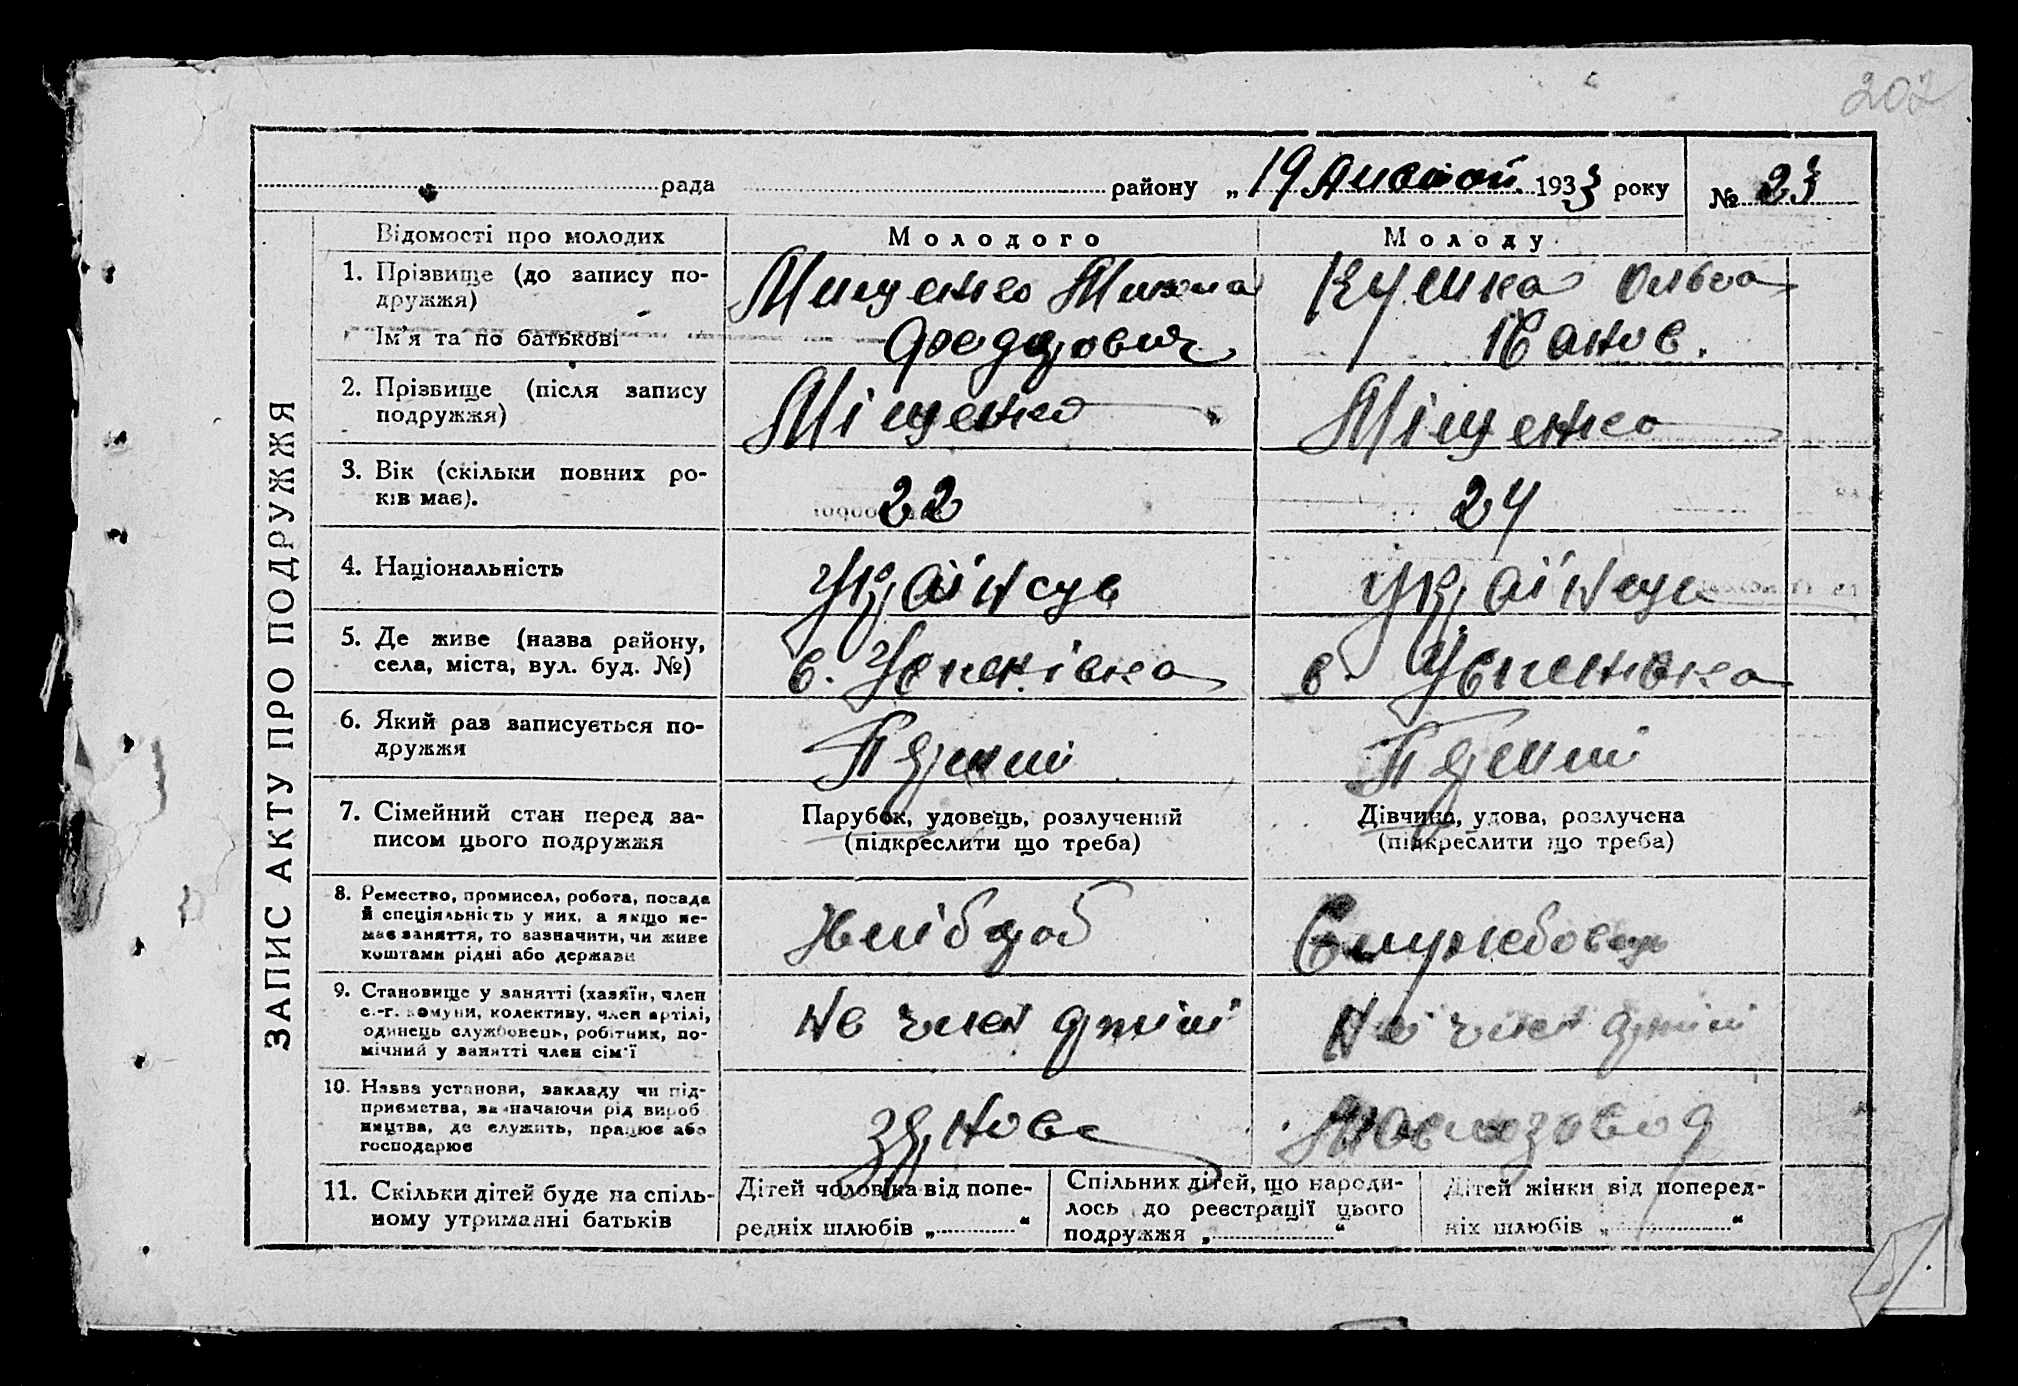 202
рада району „19 Листопй. 1933 року № 23
ЗАПИС АКТУ ПРО ПОДРУЖЖЯ
Відомості про молодих Молодого Молоду
1. Прізвище (до запису по-
дружжя)
Ім'я та по батькові
Мищенко Микола
Федорович
Кушка Ольга
Іванов.
2. Прізвище (після запису
подружжя)
Міщенко
Міщенко
3. Вік (скільки повних ро-
ків має).
22
24
4. Національність
Українец
Українец
5. Де живе (назва району,
села, міста, вул. буд. №)
с. Успенівка
с. Успенівка
6. Який раз записується по-
дружжя
Перший
Перший
7. Сімейний стан перед за-
писом цього подружжя
Парубок, удовець, розлучений
(підкреслити що треба)
Дівчина, удова, розлучена
(підкреслити що треба)
8. Ремество, промисел, робота, посада
й спеціяльність у них, а якщо не-
має заняття, то зазначити, чи живе
коштами рідні або держави
Хлібороб
Службовець
9. Становище у занятті (хазяїн, член
с.-г. комуни, колективу, член артілі,
одинець службовець, робітник, по-
мічний у занятті член сім'ї
Не член артілі
Не член артілі
10. Назва установи, закладу чи під-
приємства, зазначаючи рід вироб
ництва, де служить, працює або
господарює
Зернове
11. Скільки дітей буде на спіль-
ному утриманні батьків
Дітей чоловіка від попе-
редніх шлюбів „ “
Спільних дітей, що народи-
лось до реєстрації цього
подружжя „ “
Дітей жінки від поперед-
ніх шлюбів „ “